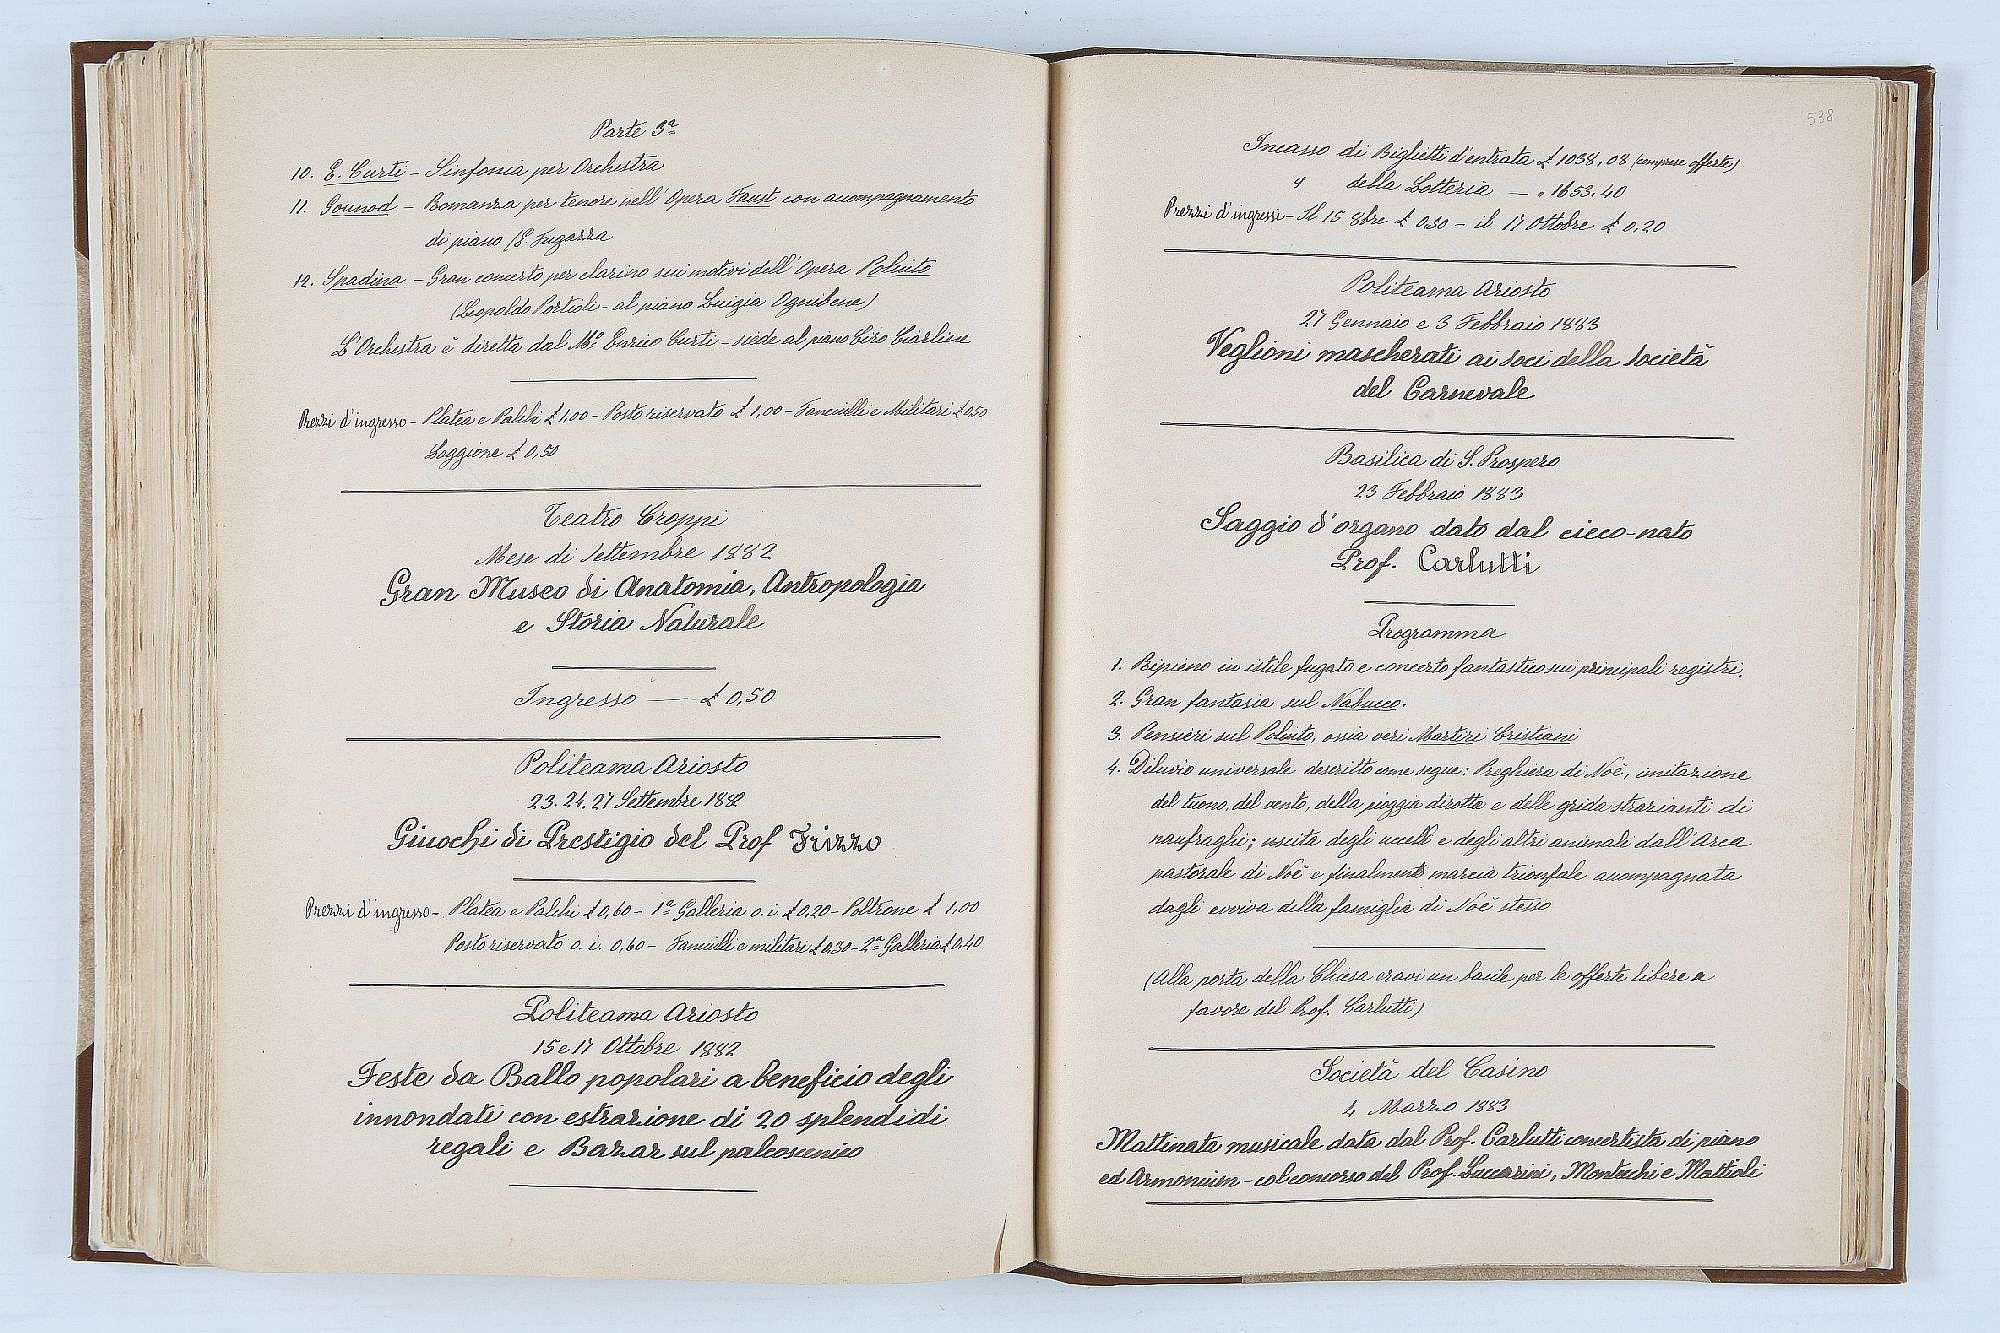 Parte 3ª
10. E. Curti - Sinfonia per Orchestra
11. Gounod - Romanza per tenore nell' Opera Faust con accompagnamento
di piano (E. Fugazza
12. Spadina - Gran concerto per clarino sui motivi dell' Opera Poliuto
(Leopoldo Portioli - al piano Luigia Ognibene)
L'Orchestra è diretta dal Mº Enrico Curti - siede al piano Ciro Ciarlise
Prezzi d'ingresso - Platea e Palchi £ 1,00 - Posto riservato £ 1,00 - Fanciulli e Militari £ 0,50
Loggione £ 0,50
Teatro Croppi
Mese di Settembre 1882
Gran Museo di Anatomia, Antropologia
e Storia Naturale
Ingresso — £ 0,50
Politeama Ariosto
23. 24. 27 Settembre 1882
Giuochi di Prestigio del Prof Frizzo
Prezzi d'ingresso - Platea e Palchi £ 0,60 - 1ª Galleria o. i £ 0,20 - Poltrone £ 1,00
Posto riservato o. i. 0,60 - Fanciulli e militari £ 0,30 - 2ª Galleria £ 0,40
Politeama Ariosto
15 e 17 Ottobre 1882
Feste da Ballo popolari a beneficio degli
innondati con estrazione di 20 splendidi
regali e Bazar sul palcoscenico
538
Incasso di Biglietti d'entrata £ 1038,08 (comprese offerte)
" della Lotteria — " 1653.40
Prezzi d'ingressi - Il 15 8bre £ 0,50 - il 17 Ottobre £ 0,20
Politeama Ariosto
27 Gennaio e 3 Febbraio 1883
Veglioni mascherati ai soci della Società
del Carnevale
Basilica di S. Prospero
23 Febbraio 1883
Saggio d'organo dato dal cieco-nato
Prof. Carlutti
Programma
1. Ripieno in istile fugato e concerto fantastico sui principali registri.
2. Gran fantasia sul Nabucco.
3. Pensieri sul Poliuto, ossia veri Martiri Cristiani
4. Diluvio universale descritto come segue: Preghiera di Noè, imitazione
del tuono, del vento, della pioggia dirotta e delle grida strazianti di
naufraghi; uscita degli uccelli e degli altri animali dall'Arca
pastorale di Noè e finalmente marcia trionfale accompagnata
dagli evviva della famiglia di Noè stesso
(Alla porta della Chiesa eravi un bacile per le offerte libere a
favore del Prof. Carlutti)
Società del Casino
4 Marzo 1883
Mattinata musicale data dal Prof. Carlutti concertista di piano
ed Armonium - col concorso del Prof. Succarini, Montecchi e Mattioli